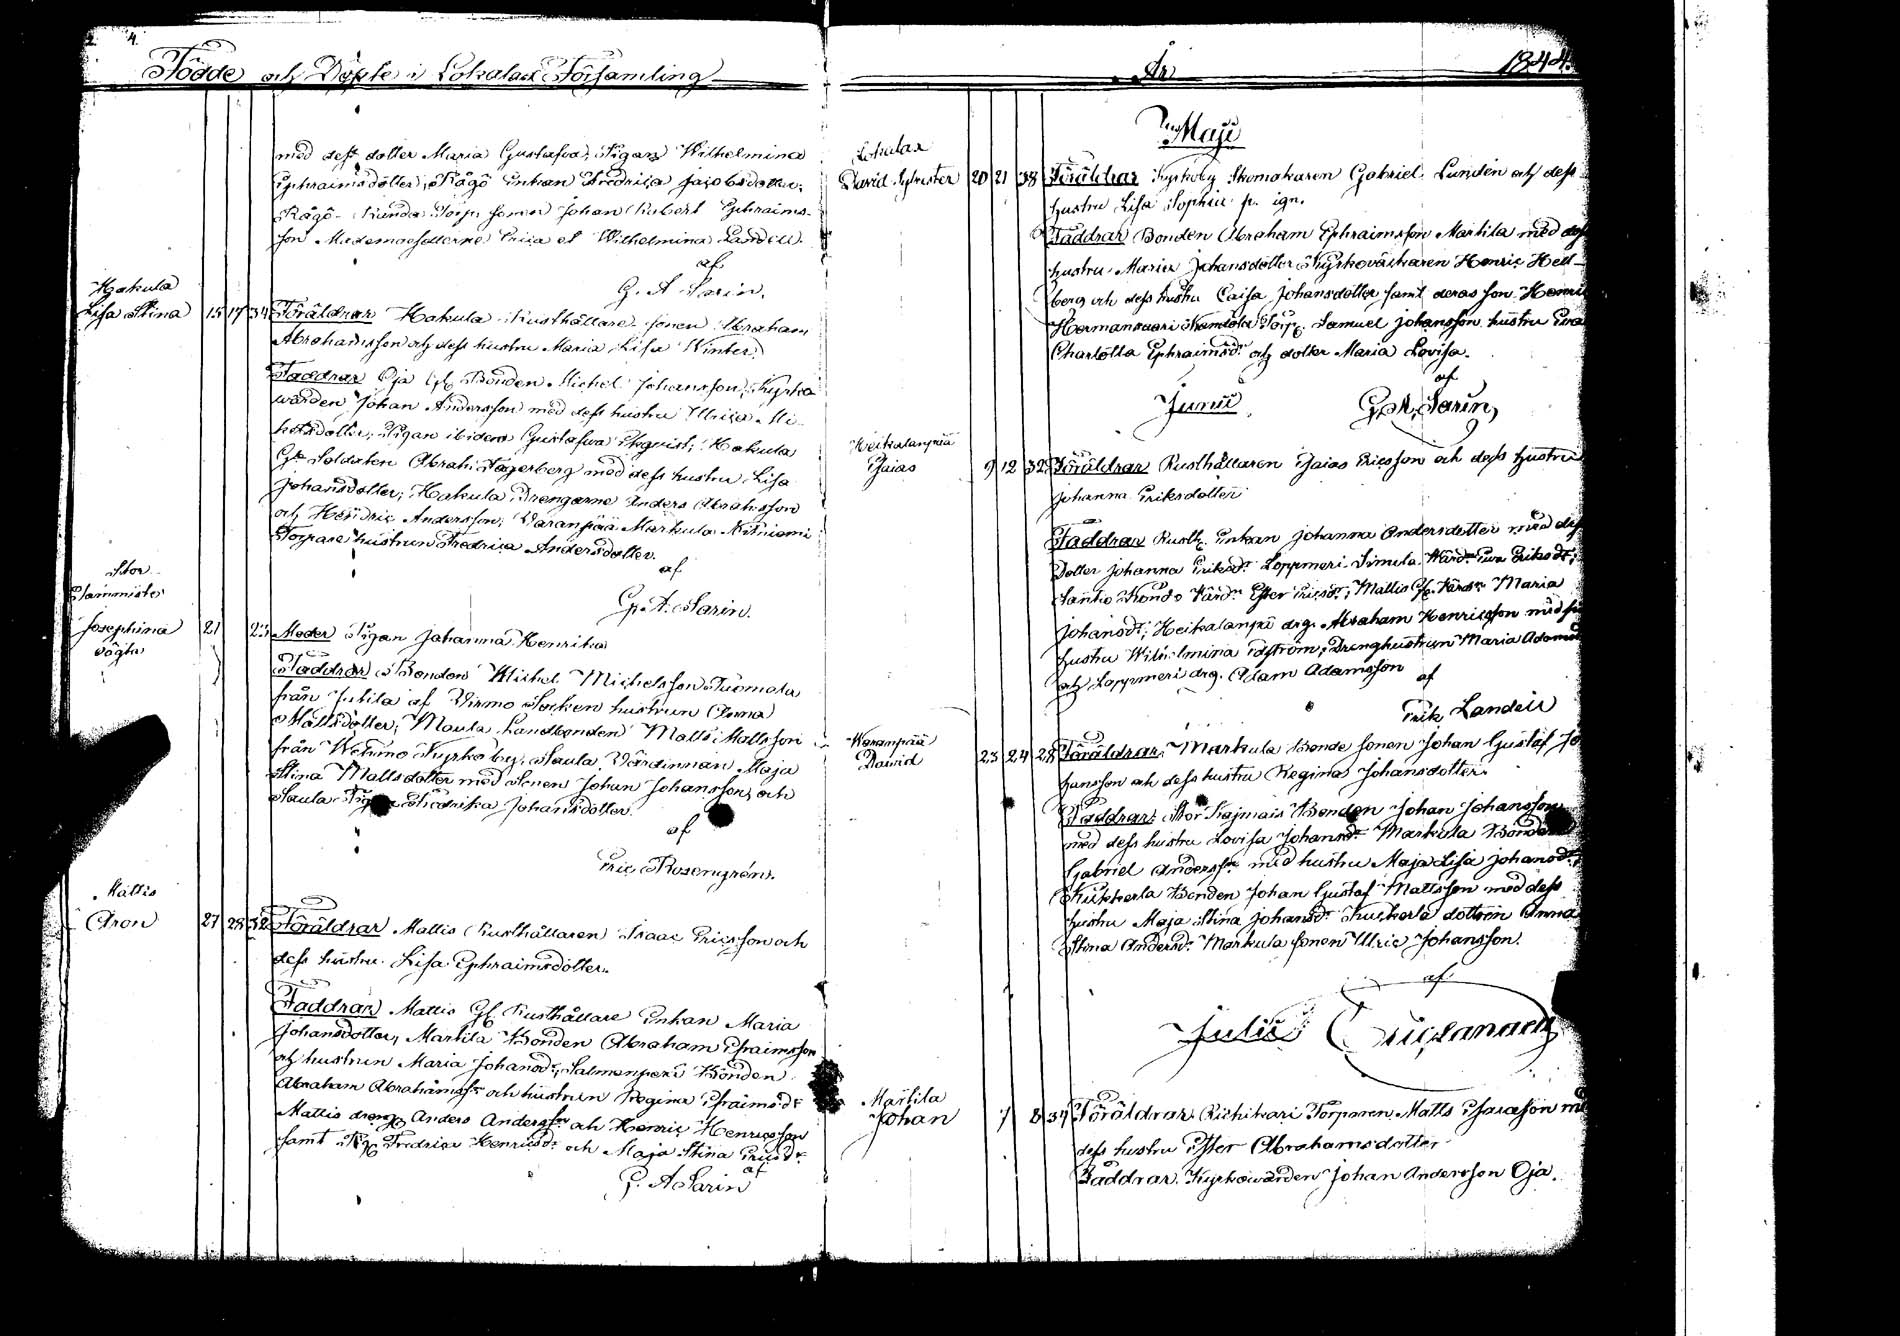 2. 4.
Födde och Döpte i Lokalax Församling
med dess dotter Maria Gustafva, Pigan Wilhelmina
Ephraimsdotter, Rågö Enkan Fredrica Jacobsdotter,
Rågö Torp sonen Johan Robert Ephraims-
son Mademoisellerne Erica et Wilhelmina Landell.
af
G. A. Sarin.
Hakula
Lisa Stina 15 17 34 Föräldrar Hakula Rusthållare sonen Abraham
Abrahamsson och dess hustru Maria Lisa Winter.
Faddrar Oja Bonden Michel Johansson, Kyrko
wärden Johan Andersson med dess hustru Ulrica Mi-
kelsdotter, Pigan ibidem Gustafva Hakula
Soldaten Abrah. Fagerberg med dess hustru Lisa
Johansdotter, Hakula Drengarne Anders Abrahsson
och Hendric Andersson, Varanpää Markula
Torpare hustrun Fredrica Andersdotter.
af
G. A. Sarin.
Stor
Tammisto
Josephina 21 23 Moder Pigan Johanna Henrika
oägta
Faddrar Bonden Michel Michelsson Tuomola
från Jutila af Virmo Socken hustrun Anna
Mattsdotter, Maula Landbonden Matts Mattsson
från Wehmo Kyrkoby, Saula Värdinnan Maja
Stina Mattsdotter med Sonen Johan Johansson, och
Saula Fredrika Johansdotter.
af
Eric Rosengrén.
Mattis
Aron 27 28 32 Föräldrar Mattis Rusthållaren Isaac Ericsson och
dess hustru Lisa Ephraimsdotter.
Faddrar Mattis Rusthållare Enkan Maria
Johansdotter, Martila Bonden Abraham Efraimsson
och hustrun Maria Johansdr, Salmenperä Bonden
Abraham Abrahamss. och hustrun Regina Efraimsdr
Mattis dreng Anders Andersson och Henric Henricsson
samt Fredrica Henricsdr och Maja Stina Ericsdr.
af
G. A. Sarin
År 1844.
Maji
Lokalax
David Sylvester 20 21 38 Föräldrar Kyrkoby Skomakaren Gabriel Lundén och dess
hustru Lisa Sophia p. ign.
Faddrar Bonden Abraham Ephraimsson Martila med dess
hustru Maria Johansdotter Kyrkoväktaren Henric Hell-
berg och dess hustru Caisa Johansdotter samt deras son Henric
Hermansaari Samuel Johansson hustru Eva
Charlotta Ephraimsdr och dotter Maria Lovisa.
af
G. A. Sarin,
Junii
Heikalanpää
Esaias 9 12 32 Föräldrar Rusthållaren Esaias Ericsson och dess hustru
Johanna Eriksdotter
Faddrar Rusth. Enkan Johanna Andersdotter med dess
Dotter Johanna Eriksdr Loppmeri Simula Värd. Eva Eriksdr,
Santio Värd. Ester Ericsdr, Mattis Värd. Maria
Johansdr, Heikalanpä drg. Abraham Henricsson med
hustru Wilhelmina Edström, Drenghustrun Maria
och Loppmeri drg. Adam Adamsson af
Erik Landell
Waranpää
Dawid 23 24 28 Föräldrar, Markula Bonde sonen Johan Gustaf Jo
hansson och dess hustru Regina Johansdotter
Faddrar: Stor Kajmais Bonden Johan Johansson
med dess hustru Lovisa Johansdr Markula Bonden
Gabriel Anderss. med hustru Maja Lisa Johansdr,
Kukkerla Bonden Johan Gustaf Mattsson med dess
hustru Maja Stina Johansdr Kuskerla dottren Anna
Stina Andersd. Markula sonen Ulric Johansson.
af
Julii Eric Landell
Martila
Johan 7 8 37 Föräldrar Torparen Matts Esaiasson med
dess hustru Ester Abrahamsdotter
Faddrar. Kyrkowärden Johan Andersson Oja.